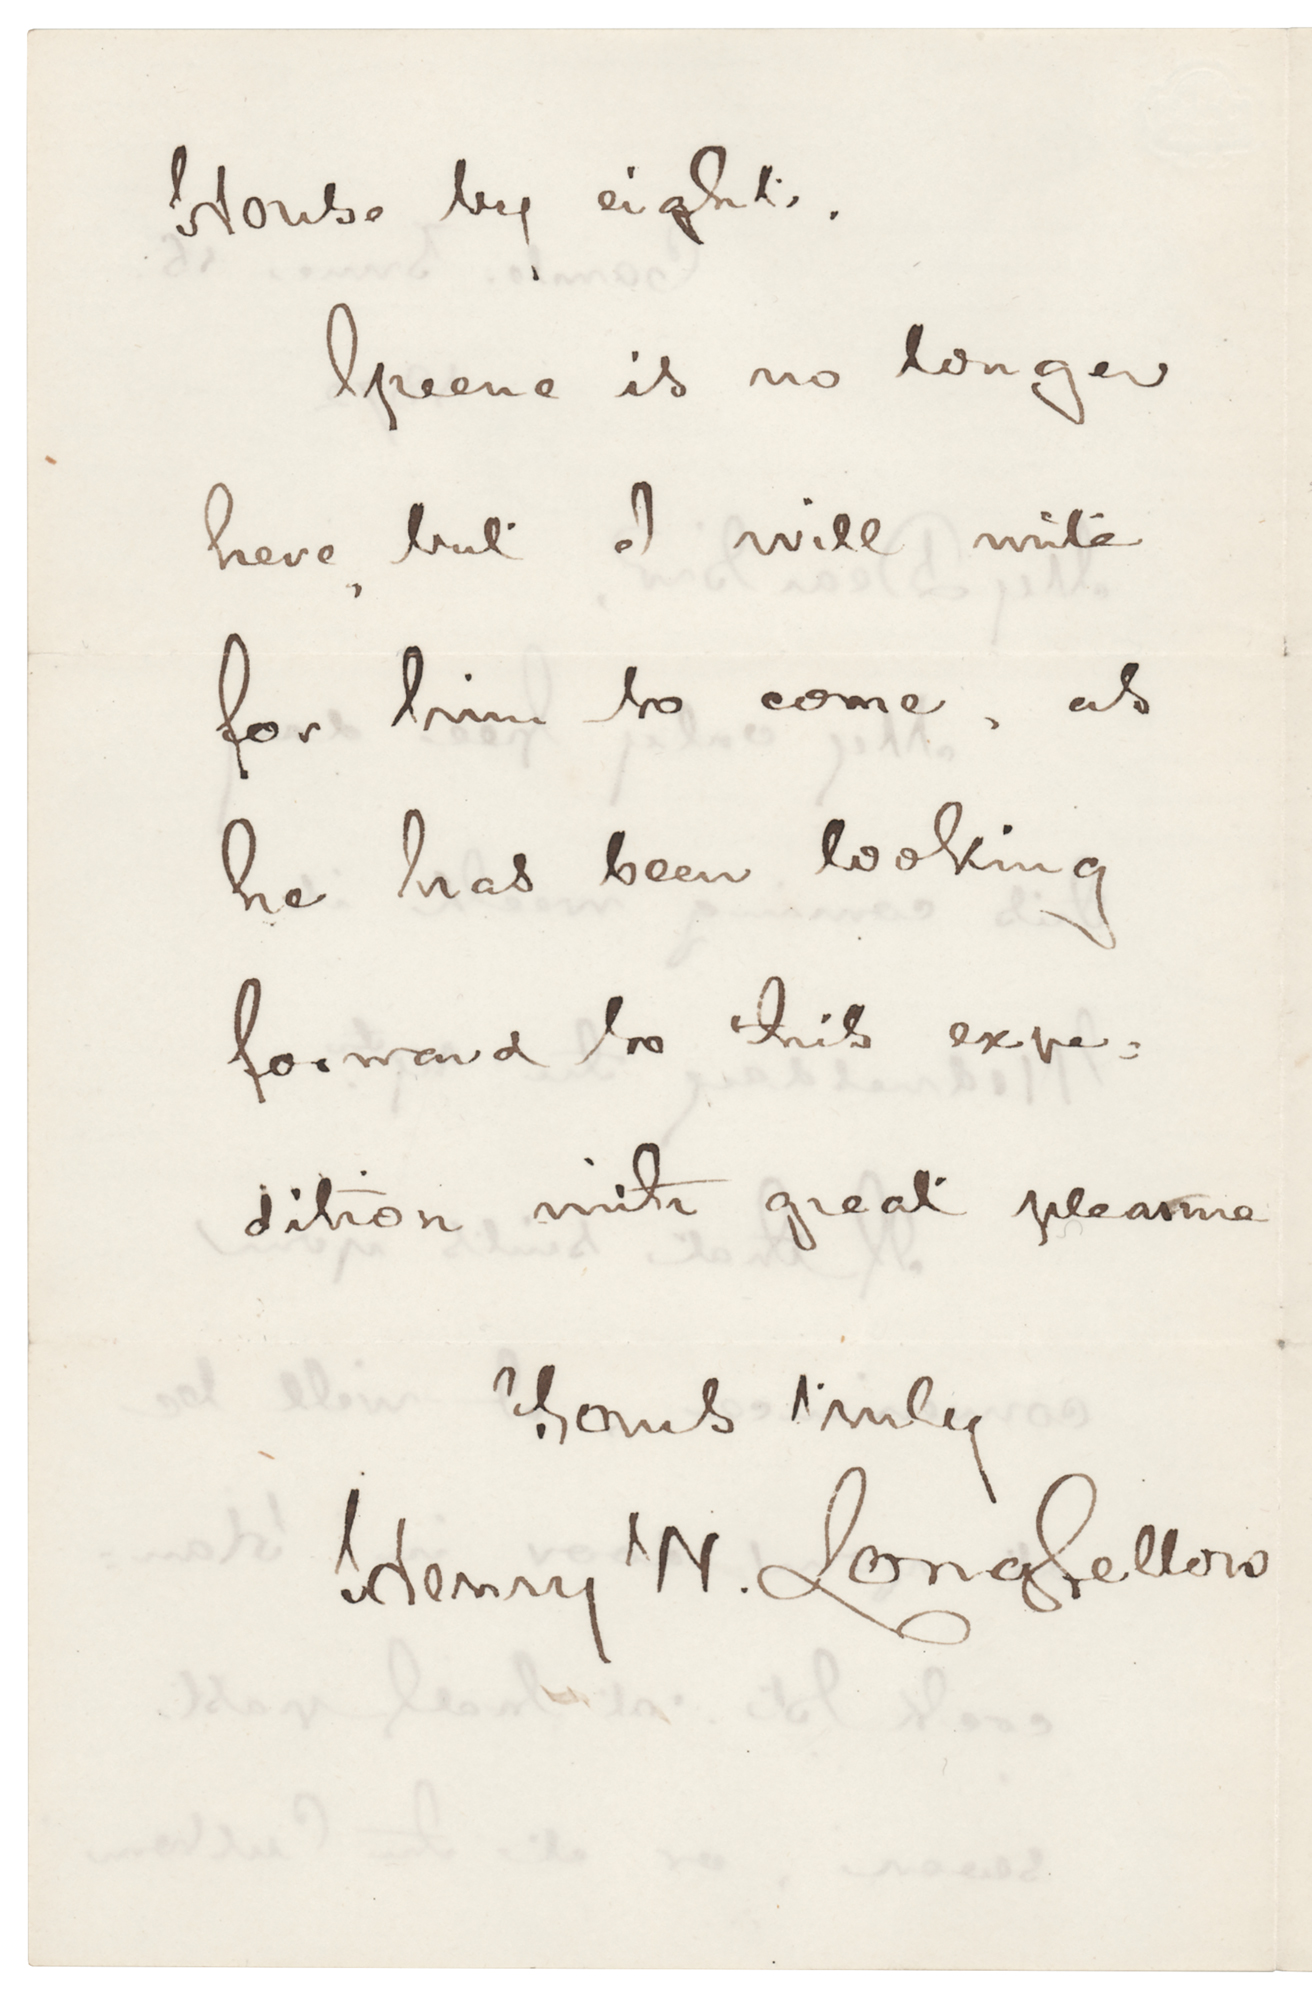 House by eight.
Greene is no longer
here, but I will write
for him to come, as
he has been looking
forward to this expe=
dition with great pleasure
Yours truly
Henry W. Longfellow